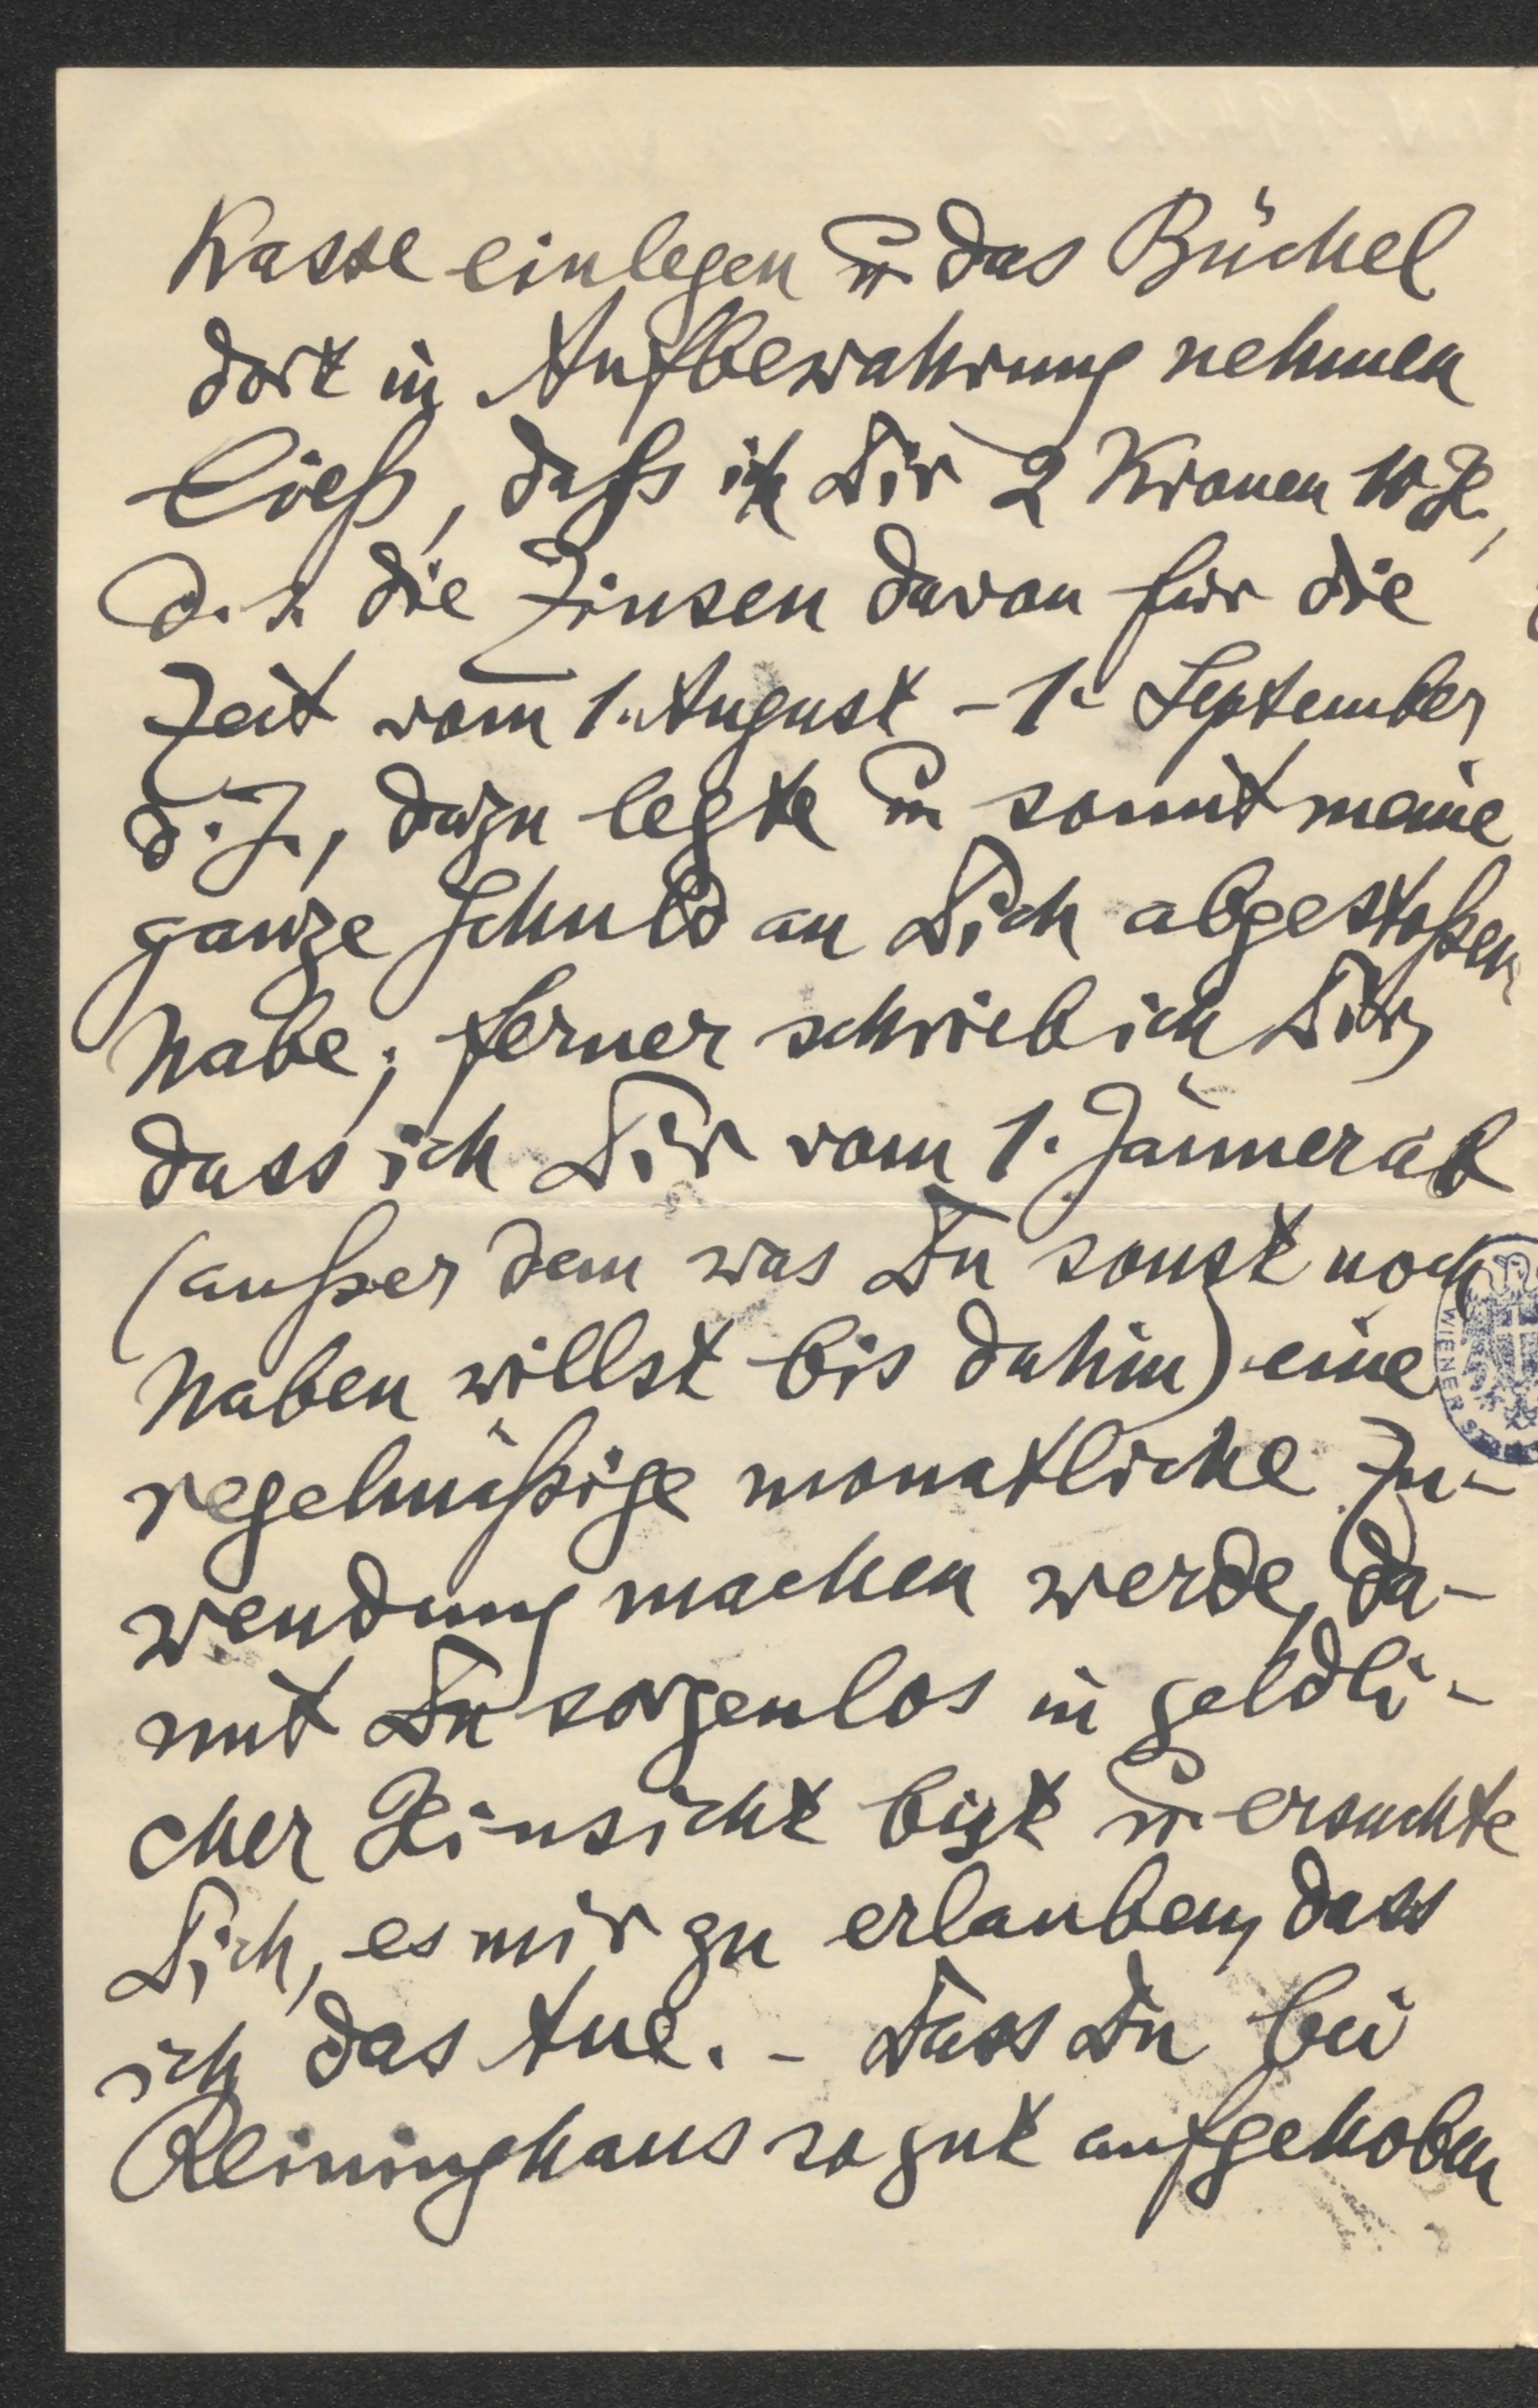 Kasse einlegen u. das Büchel
dort in Aufbewahrung nehmen
ließ, daß ich Dir 2 Kronen 10 H.,
d. s. die Zinsen davon für die
Zeit vom 1. August – 1. September
d. J., dazu legte u. somit meine
ganze Schuld an Dich abgestoßen
habe; ferner schrieb ich Dir,
dass ich Dir vom 1. Jänner ab
(außer dem was Du sonst noch
haben willst bis dahin) eine
regelmäßige monatliche Zu-
wendung machen werde, da-
mit Du sorgenlos in geldli-
cher Hinsicht bist u. ersuchte
Dich, es mir zu erlauben, dass
ich das tue. – Dass Du bei
Reininghaus so gut aufgehoben
WIENER S